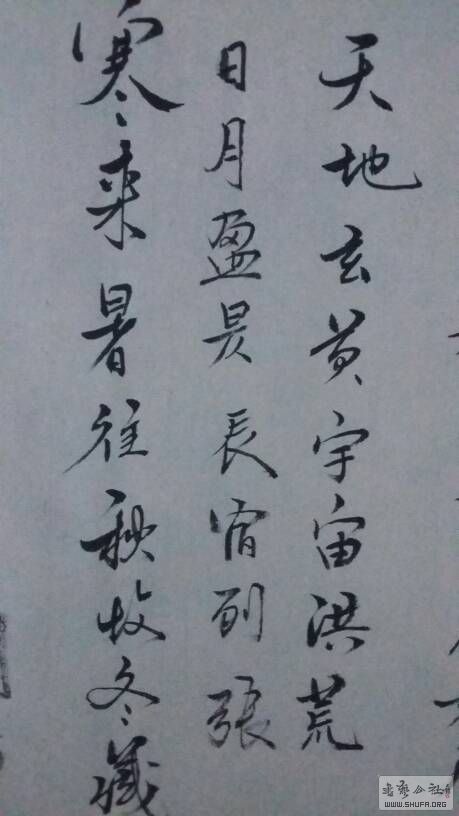 天地玄黄宇宙洪荒
日月盈昃辰宿列張
寒来暑往秋收冬藏
書藝公社
WWW.SHUFA.ORG